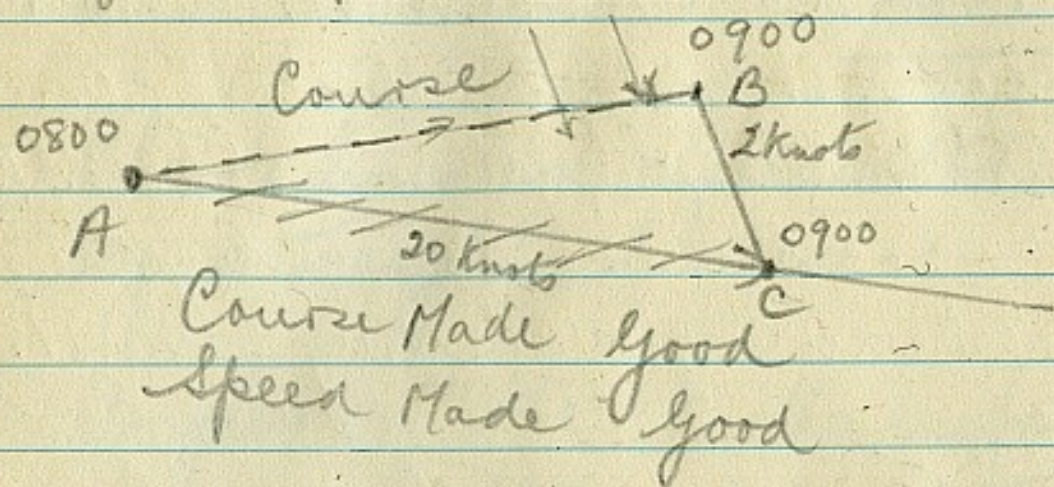 0900
Course
B
0800
2 Knots
A
0900
20 Knots
C
Course Made Good
Speed Made Good